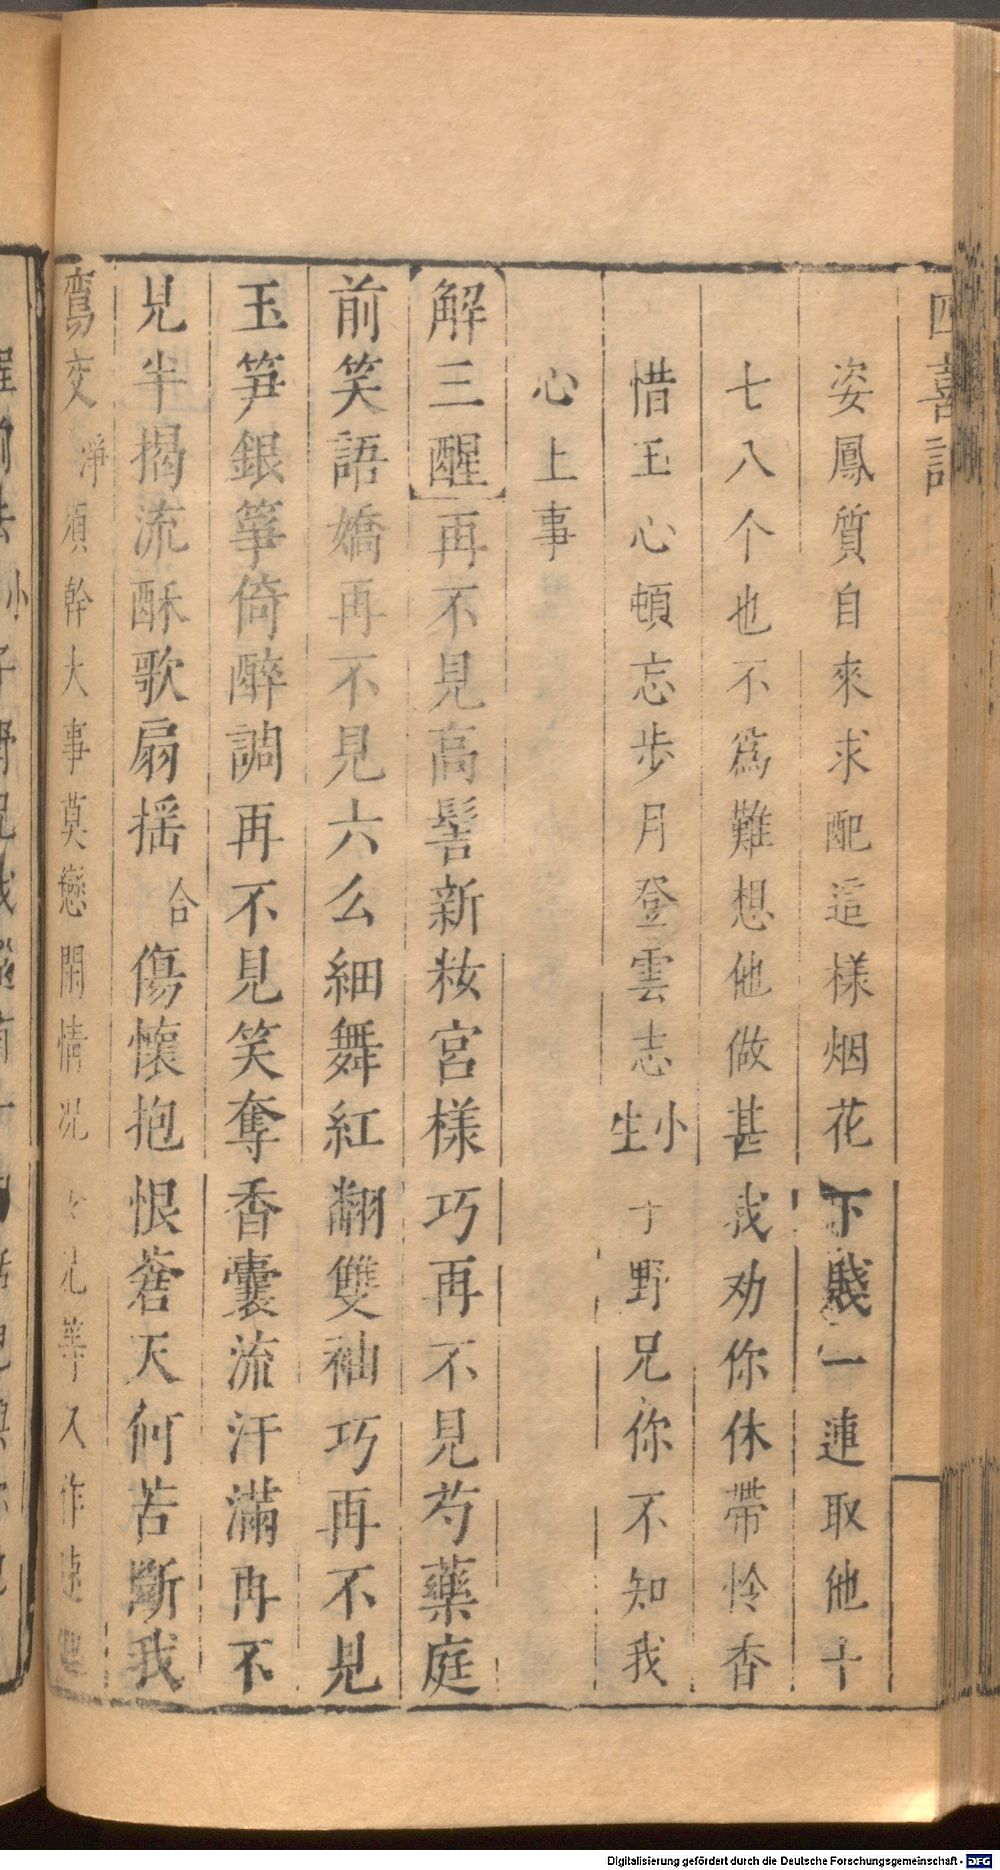 四喜記
姿鳳質自來求配這樣烟花下賤一連取他十
七八个也不爲難想他做甚我劝你休帶怜香
惜玉心頓忘步月登雲志小生于野兄你不知我
心上事
解三酲再不見高髻新妝宮樣巧再不見芍藥庭
前笑語嬌再不見六么細舞紅翻雙袖巧再不見
玉笋銀箏倚醉調再不見笑奪香囊流汗滿再不
見半揭流酥歌扇揺合傷懷抱恨蒼天何苦斷我
鸞交淨須幹大事莫戀閑情况兄等又作
Digitalisierung gefördert durch die Deutsche Forschungsgemeinschaft - DFG